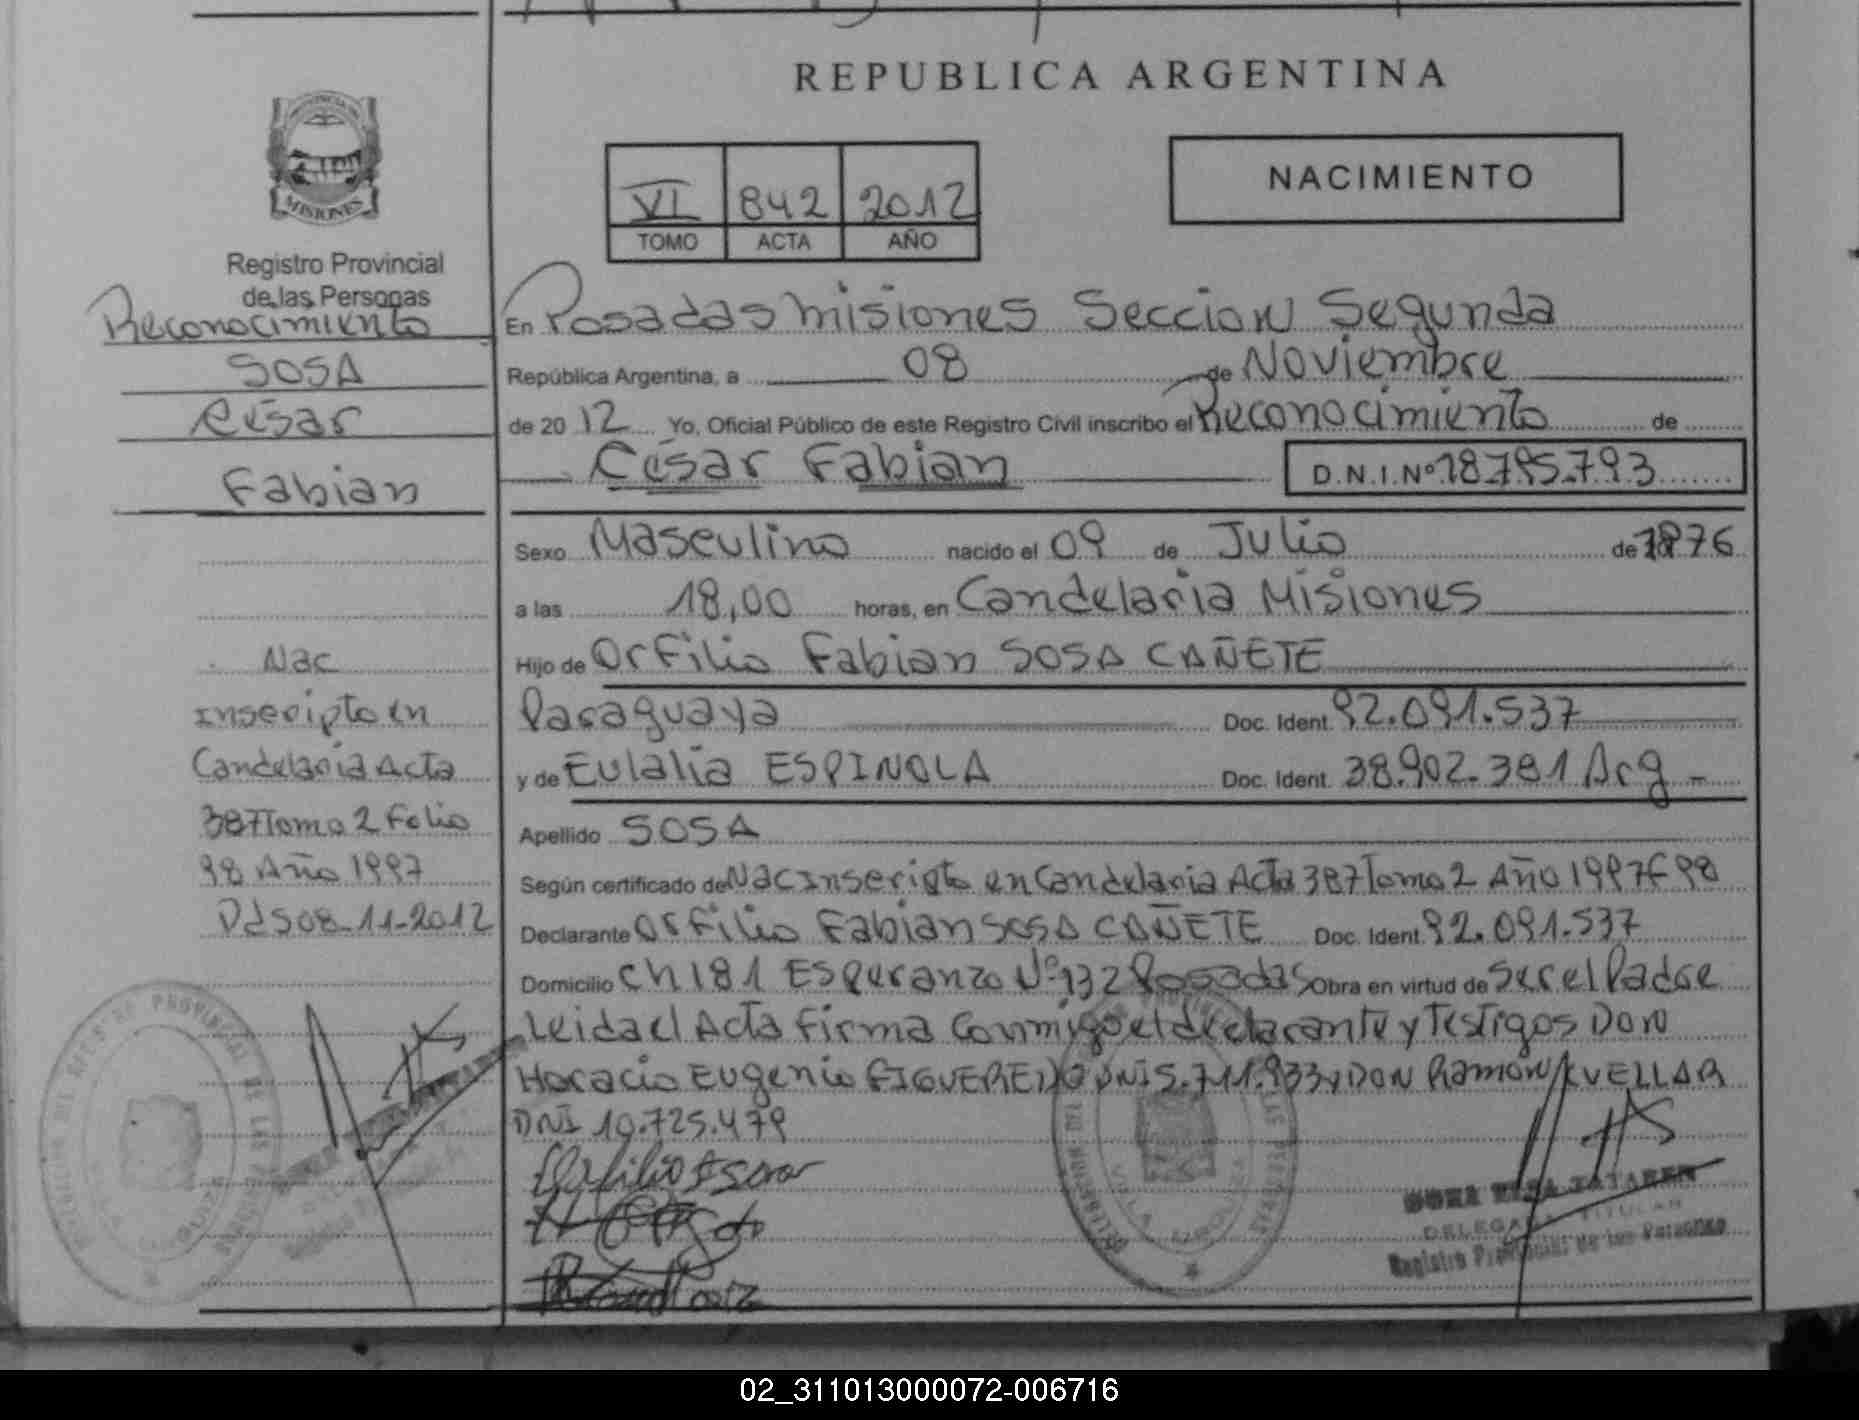 REPUBLICA ARGENTINA
PROVINCIA DE
MISIONES
VI 842 2012
TOMO ACTA AÑO
NACIMIENTO
Registro Provincial
de las Personas
Reconocimiento
SOSA
Cesar
Fabian
Nac
Inscripto en
Candelaria Acta
387 Tomo 2 Folio
98 Año 1997
Pds 08-11-2012
En Posadas Misiones Seccion Segunda
República Argentina, a 08 de Noviembre
de 2012 Yo, Oficial Público de este Registro Civil inscribo el Reconocimiento de
Cesar Fabian D.N.I.Nº 18.795.793
Sexo Masculino nacido el 09 de Julio de 1976
a las 18,00 horas, en Candelaria Misiones
Hijo de Orfilio Fabian SOSA CAÑETE
Paraguaya Doc. Ident. 92.091.537
y de Eulalia ESPINOLA Doc. Ident. 38.902.381 Arg -
Apellido SOSA
Según certificado de Nac Inscripto en Candelaria Acta 387 Tomo 2 Año 1997 F 98
Declarante Orfilio Fabian SOSA CAÑETE Doc. Ident. 92.091.537
Domicilio Ch 181 Esperanza Nº 132 Posadas Obra en virtud de Ser el Padre
Leida el Acta Firma Conmigo el declarante y Testigos Don
Horacio Eugenio FIGUEREDO DNI 5.711.933 y DON Ramon CUELLAR
DNI 10.725.479
DELEGADA TITULAR
Registro Provincial de las Personas
02_311013000072-006716